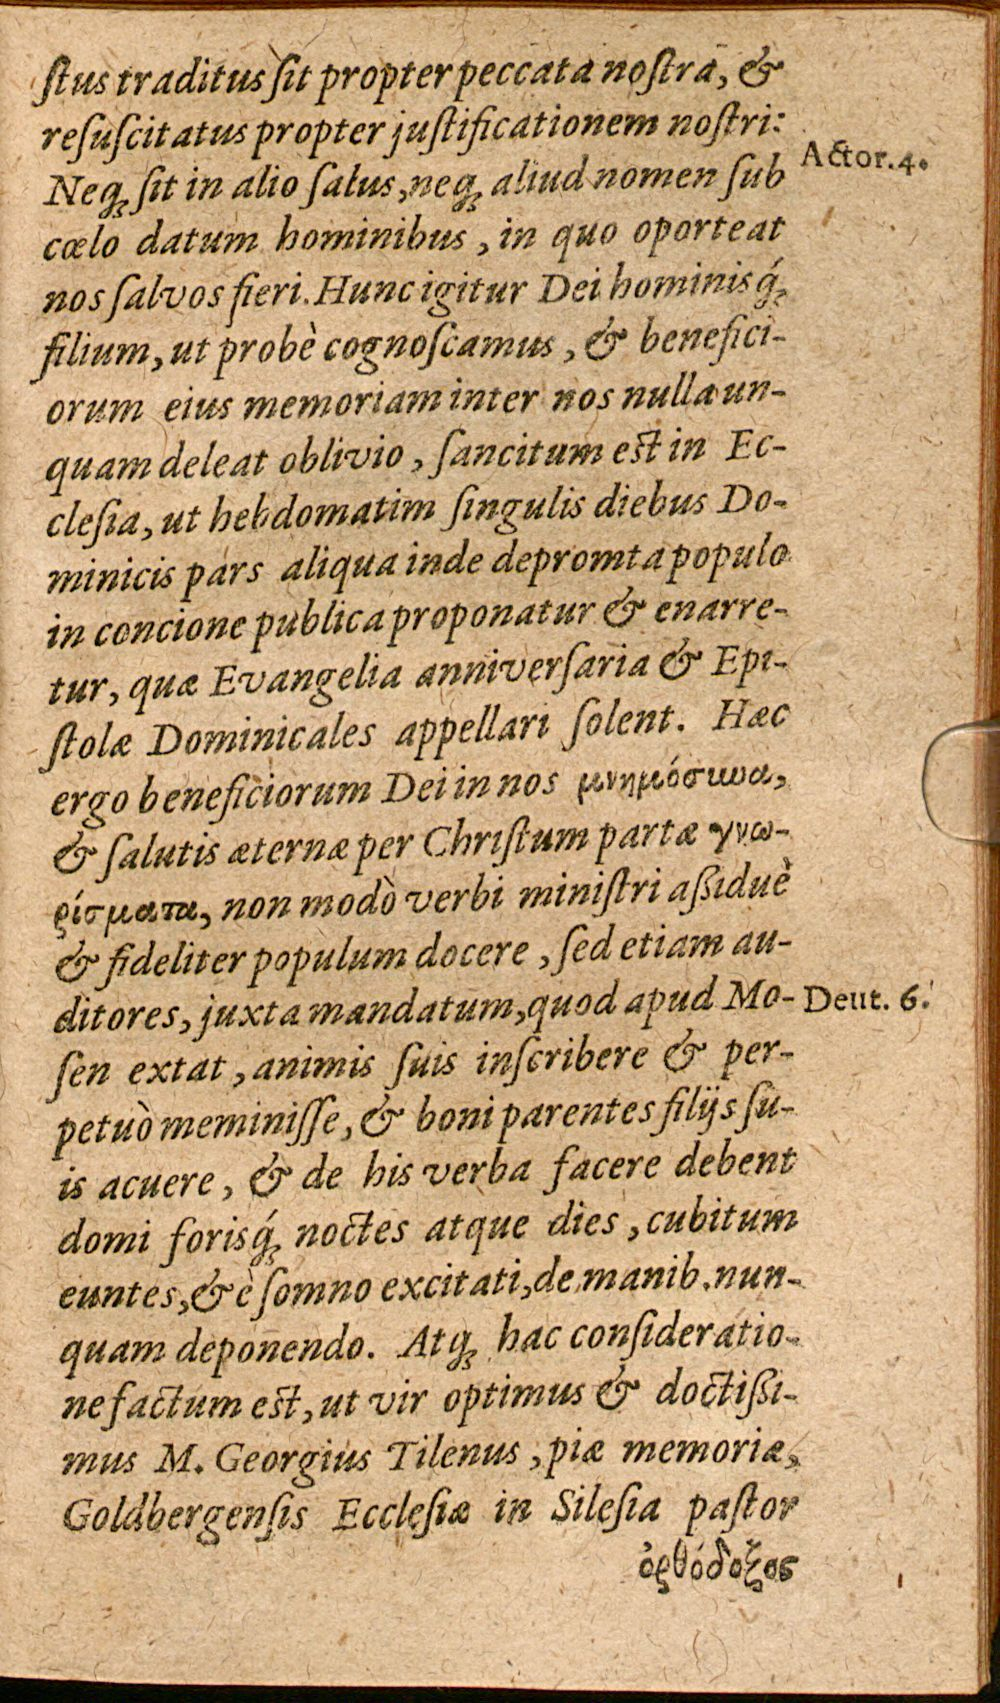 ſtus traditus ſit propter peccata noſtra, &
reſuſcitatus propter juſtificationem noſtri:
Actor. 4.
Neq; ſit in alio ſalus, neq; aliud nomen ſub
cœlo datum hominibus, in quo oporteat
nos ſalvos fieri. Hunc igitur Dei hominisq́;
filium, ut probè cognoſcamus, & benefici-
orum eius memoriam inter nos nulla un-
quam deleat oblivio, ſancitum eſt in Ec-
cleſia, ut hebdomatim ſingulis diebus Do-
minicis pars aliqua inde depromta populo
in concione publica proponatur & enarre-
tur, quæ Evangelia anniverſaria & Epi-
ſtolæ Dominicales appellari ſolent. Hæc
ergo beneficiorum Dei in nos μνημόσυνα,
& ſalutis æternæ per Chriſtum partæ γνω-
ρίσματα, non modò verbi miniſtri aßiduè
& fideliter populum docere, ſed etiam au-
ditores, juxta mandatum, quod apud Mo-
Deut. 6.
ſen extat, animis ſuis inſcribere & per-
petuò meminiſſe, & boni parentes filijs ſu-
is acuere, & de his verba facere debent
domi forisq́; noctes atque dies, cubitum
euntes, & è ſomno excitati, de manib. nun-
quam deponendo. Atq; hac conſideratio-
ne factum eſt, ut vir optimus & doctißi-
mus M. Georgius Tilenus, piæ memoriæ,
Goldbergenſis Eccleſiæ in Sileſia paſtor
ὀρθόδοξος